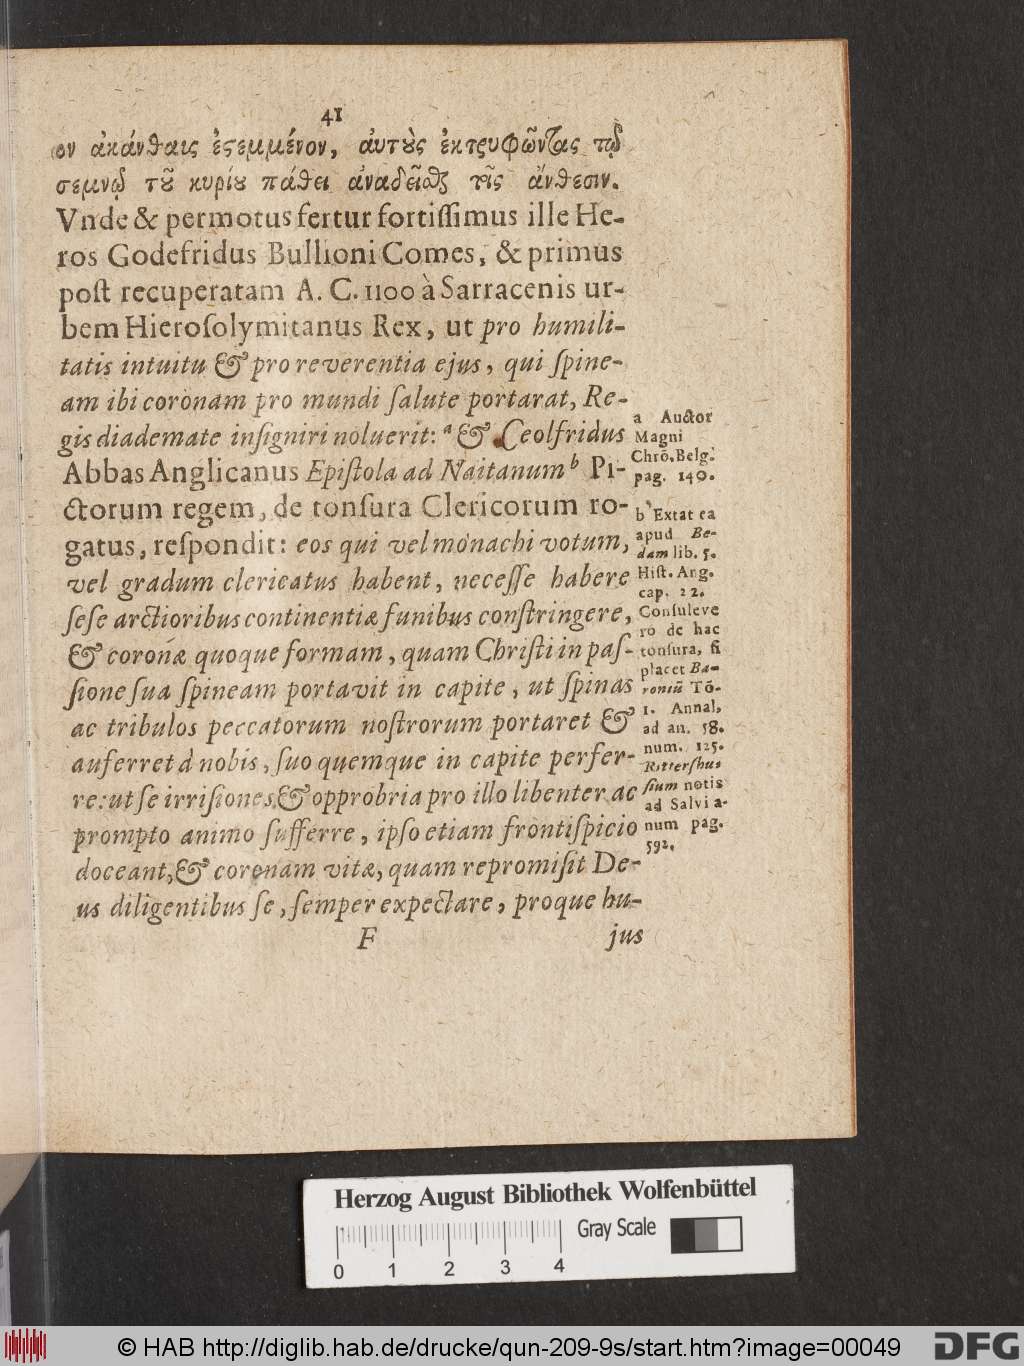 41
ον ἀκάνθαις ἐστεμμένον, αὐτοὺς ἐκτρυφῶντας
σεμνῷ τοῦ κυρίου πάθει ἀναδεῖσθαι τοῖς ἄνθεσιν.
Vnde & permotus fertur fortiſſimus ille He-
ros Godefridus Bullioni Comes, & primus
poſt recuperatam A. C. 1100 à Sarracenis ur-
bem Hieroſolymitanus Rex, ut pro humili-
tatis intuitu & pro reverentia ejus, qui ſpine-
am ibi coronam pro mundi ſalute portarat, Re-
gis diademate inſigniri noluerit: a & Ceolfridus
Abbas Anglicanus Epiſtola ad Naitanum b Pi-
ctorum regem, de tonſura Clericorum ro-
gatus, reſpondit: eos qui vel monachi votum,
vel gradum clericatus habent, neceſſe habere
ſeſe arctioribus continentiæ funibus conſtringere,
& coronæ quoque formam, quam Chriſti in paſ-
ſione ſua ſpineam portavit in capite, ut ſpinas
ac tribulos peccatorum noſtrorum portaret &
auferret à nobis, ſuo quemque in capite perfer-
re: ut ſe irriſiones & opprobria pro illo libenter ac
prompto animo ſufferre, ipſo etiam frontiſpicio
doceant, & coronam vitæ, quam repromiſit De-
us diligentibus ſe, ſemper expectare, proque hu-
F jus
a Auctor
Magni
Chrō. Belg.
pag. 140.
b Extat ea
apud Be-
dam lib. 5.
Hiſt. Ang.
cap. 22.
Conſuleve
ro de hac
tonſura, ſi
placet Ba-
roniū Tō-
1. Annal,
ad an. 58.
num. 125.
Ritterſhu-
ſium notis
ad Salvia-
num pag.
592.
Herzog August Bibliothek Wolfenbüttel
Gray Scale
0 1 2 3 4
© HAB http://diglib.hab.de/drucke/qun-209-9s/start.htm?image=00049
DFG